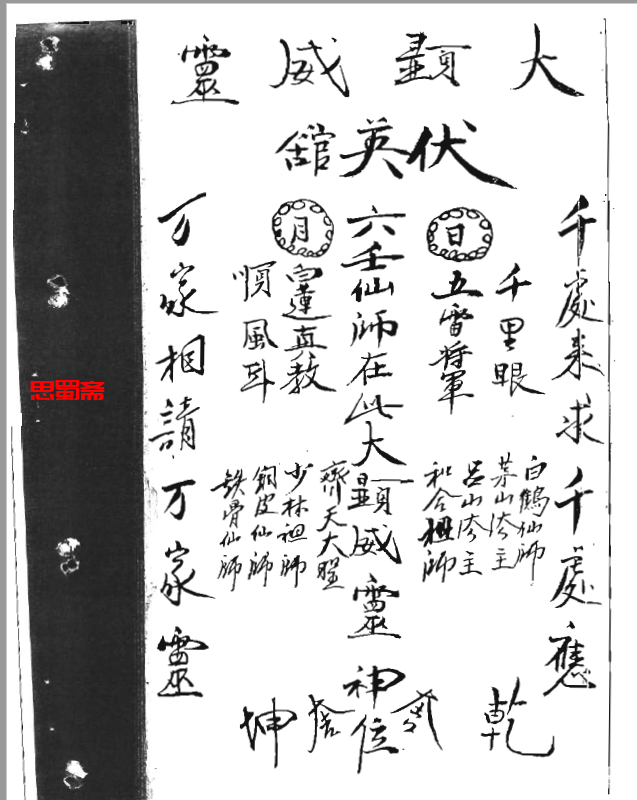 大顯威靈
伏英舘
千處來求千處應
千里眼
白鶴仙師
茅山法主
日
五雷將軍
呂山法主
和合祖師
乾
六壬仙師在此大顯威靈神位
月
白蓮真教
順風耳
齊天大聖
少林祖師
銅皮仙師
鉄骨仙師
坤
万家相請万家靈
思蜀斋